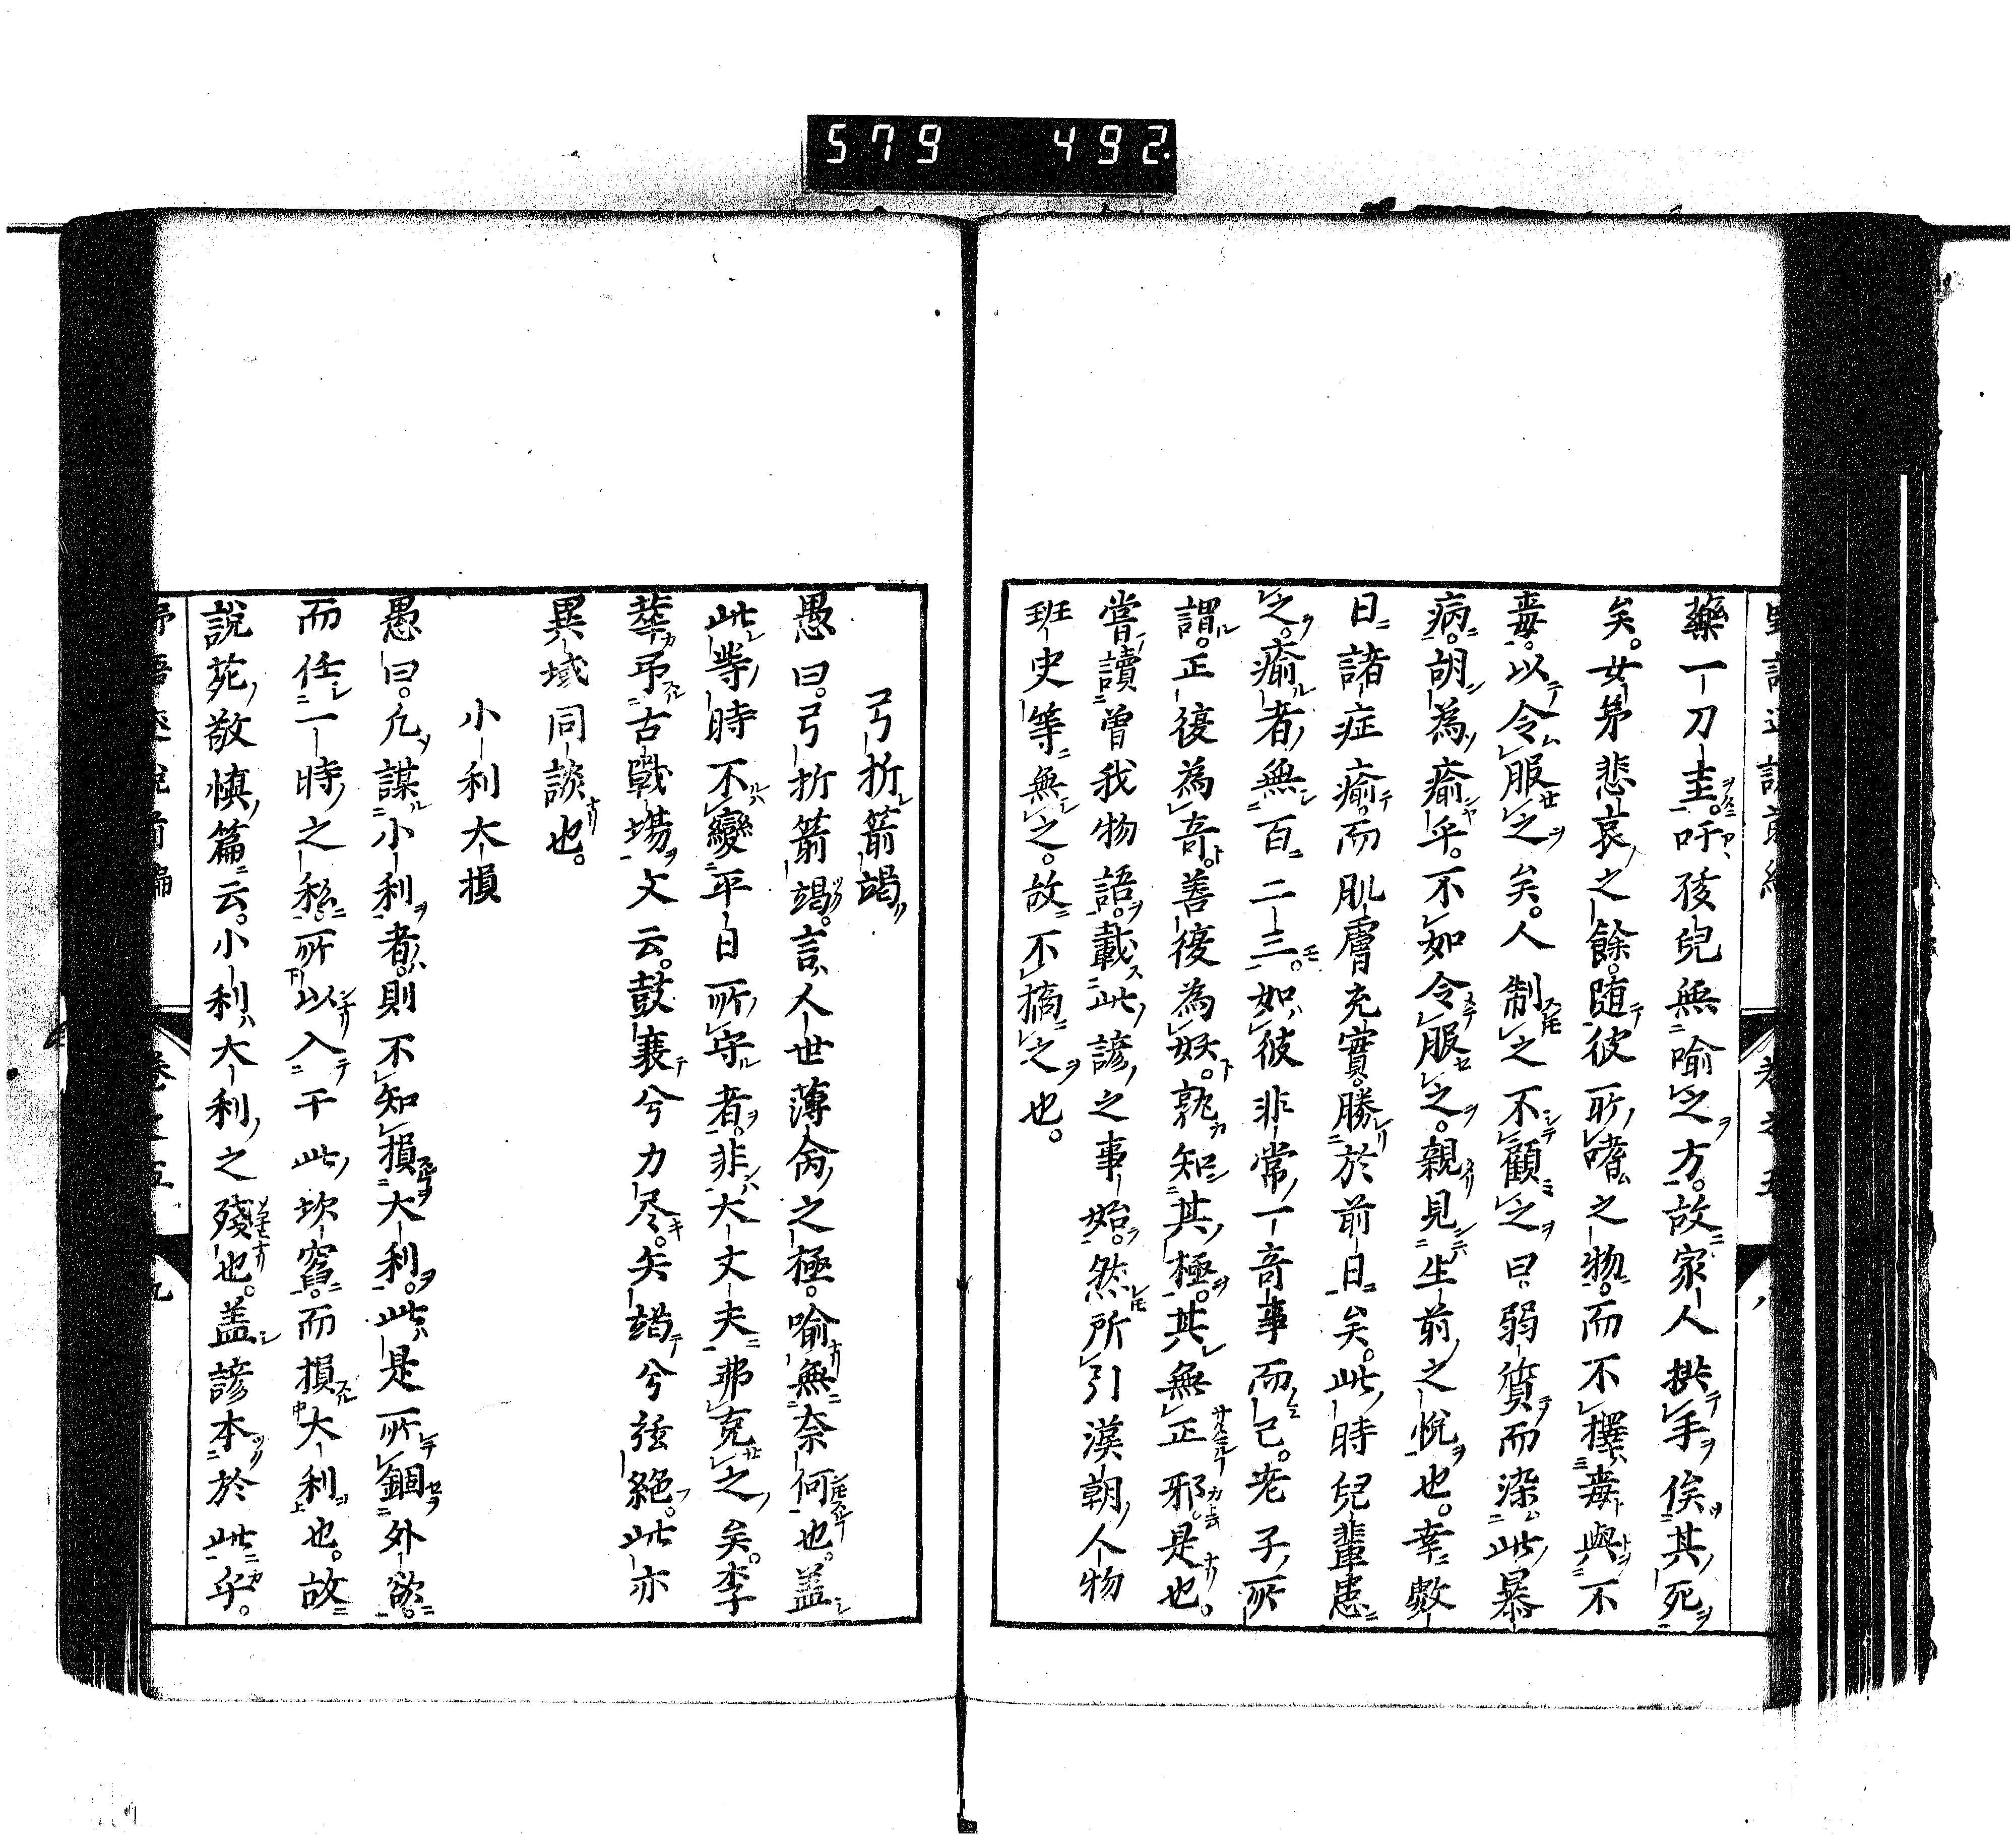 579 492.
藥一刀圭。呼孩兒無喻之方。故家人拱手俟其死
矣。女弟悲哀之餘。随彼所嗜之物。而不擇毒與不
毒。以令服之矣。人制之不顧之曰。弱質而染此暴
病。胡為瘉乎。不如令服之。親見生前之悅也。幸數
日諸症瘉而肌膚充實。勝於前日矣。此時兒輩患
之。瘉者無百二三。如彼非常一奇事而已。老子所
謂。正復為奇。善復為妖。孰知其極。其無正邪。是也。
嘗讀曽我物語。載此諺之事始。然所引漢朝人物
班史等無之。故不摘之也。
弓折箭竭
愚曰。弓折箭竭。言人世薄命之極。喻無奈何也。盖
此等時不變平日所守者。非大丈夫弗克之矣。李
華弔古戰塲文云。鼓衰兮力尽。矢竭兮弦絶。此亦
異域同談也。
小利大損
愚曰。凢謀小利者。則不知損大利。此是所錮外欲。
而任一時之私。所以入于此坎窞。而損大利也。故
說苑敬慎篇云。小利大利之殘也。盖諺本於此乎。